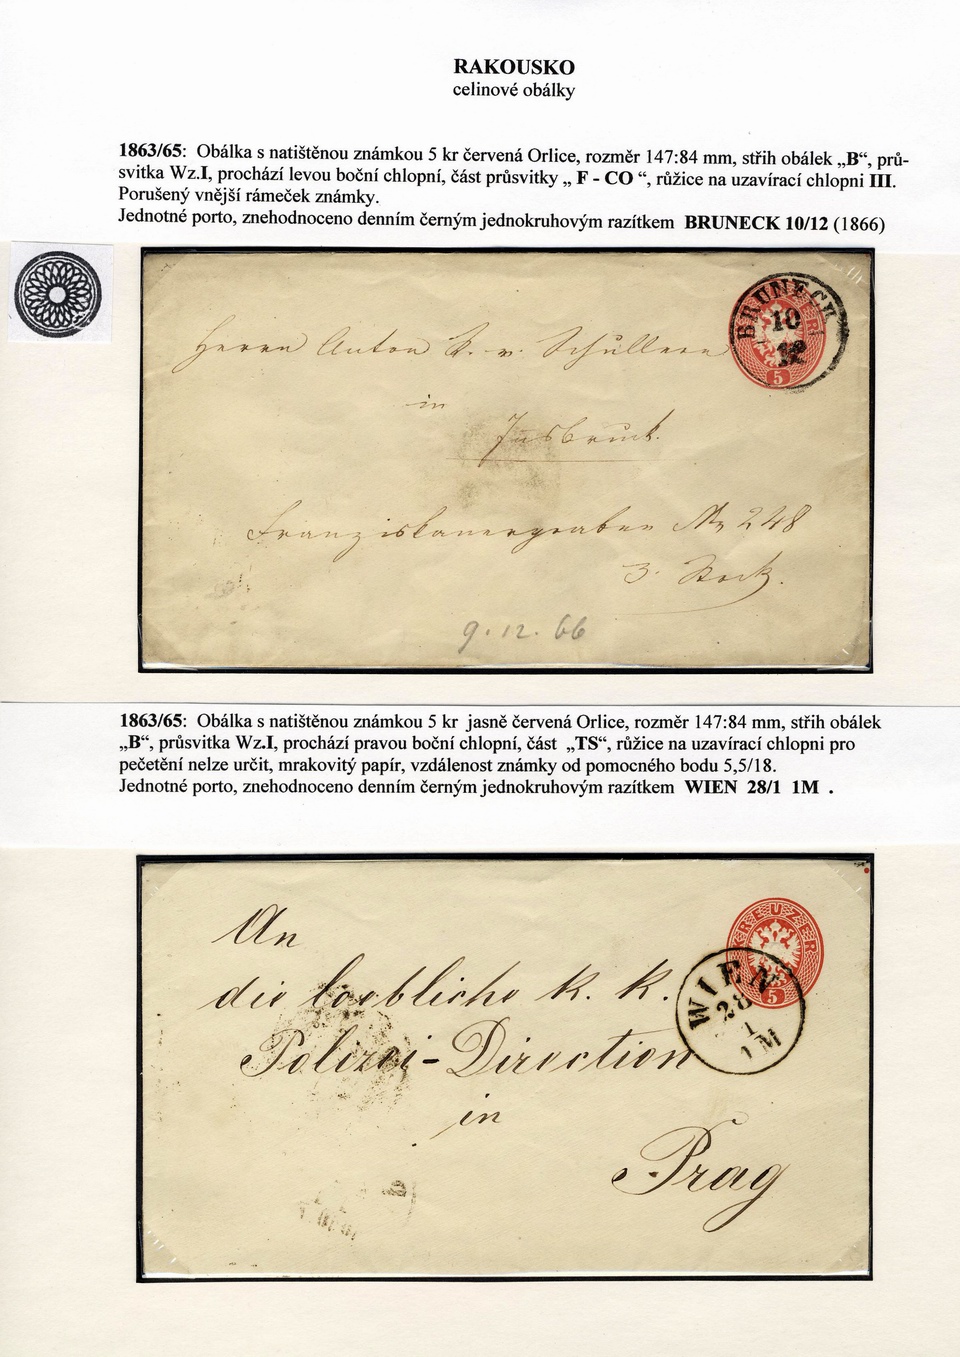 RAKOUSKO
celinové obálky
1863/65: Obálka s natištěnou známkou 5 kr červená Orlice, rozměr 147:84 mm, střih obálek „B“, prů-
svitka Wz.I, prochází levou boční chlopní, část průsvitky „ F - CO “, růžice na uzavírací chlopni III.
Porušený vnější rámeček známky.
Jednotné porto, znehodnoceno denním černým jednokruhovým razítkem BRUNECK 10/12 (1866)
BRUNECK
10
12
5
Herrn Anton v. Schullern
in
Insbruck.
Franziskanergraben No 248
3. Stock.
9. 12. 66
1863/65: Obálka s natištěnou známkou 5 kr jasně červená Orlice, rozměr 147:84 mm, střih obálek
„B“, průsvitka Wz.I, prochází pravou boční chlopní, část „TS“, růžice na uzavírací chlopni pro
pečetění nelze určit, mrakovitý papír, vzdálenost známky od pomocného bodu 5,5/18.
Jednotné porto, znehodnoceno denním černým jednokruhovým razítkem WIEN 28/1 1M .
KREUZER
5
WIEN
28
1
1 M
An
die loebliche k. k.
Polizei-Direction
in
Prag